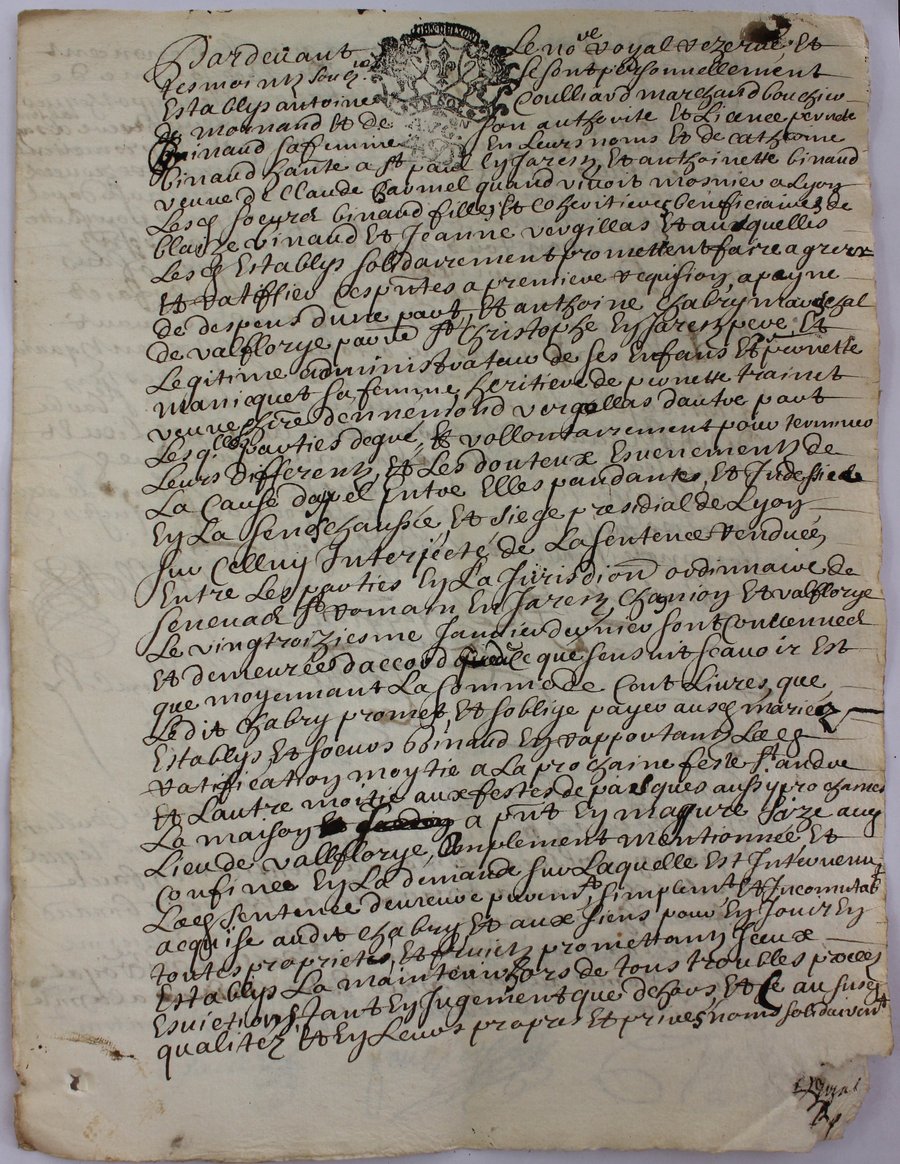 Pardevant Le no.re Royal Rezervé Et
tesmoints Soub.nez se sont personnellement
Establys antoine Coulliard marchand bouchier
de mornand Et de son authorité Et Licence pernete
binaud sa femme En Leurs noms Et de catherine
binaud hante a St paul En Jarestz Et anthoinette binaud
veuve de Claude Charmel quand vivoit mosnier a Lyon
Lesd Soeurs binaud filles Et Cohéritieres beneficiaires de
blaize binaud Et Jeanne vergillas Et ausquelles
Lesd Establys solidairement promettent faire agreer
Et Ratiffier Cesp.ntes a premiere Requision, a payne
de despens d'une part, Et anthoine Chabry mareschal
de valflorye parr.e St Christophe En Jarestz pere, Et
Legitime administrateur de ses Enfans Et pernette
manicquet sa femme, heritiere de pernette trainet
veuve Et here d'ennemond vergillas d'autre part
Lesq.lles parties de gré, Et vollontairement pour terminer
Leurs differents, Et Les douteux Esvenements de
La Cause d'apel Entre Elles pandantes, Et Indessize
En La seneschaussée, Et siege presidial de Lyon
sur Celluy Interjecté de La sentence Rendue
Entre Les parties En La Jurisdion ordinnaire de
Senevas St Romain En Jarestz, Chanion Et valflorye
Le vingtroiziesme Janvier dernier sont Convenues
Et demeurées d'accord de Ce que sensuit scavoir Est
que moyennant La Somme de Cent Livres, que
Ledit Chabry promet, Et soblige payer ausd mariez
Establys Et soeurs binaud En Rapportant Lad
Ratification moytié a La prochaine feste St andre
Et L'autre moitié aux festes de pasques aussy prochaines
La maison a p.nt En mazure size aud
Lieu de vallflorye, Emplement mentionnée, Et
Confinee En La demande sur Laquelle Est Intervenu
Lad sentence demeure purem.t, simplem.t Et Incomutab.t
acquise audit Chabry Et aux siens pour En Jouir En
toutes proprietés, Et fruictz promettantz Iceux
Establys La maintenir hors de tous troubles proces
Esvictions tant En Jugement que dehors, Et Ce au susd
qualitez Et En Leurs propres Et privés noms solidairem.t